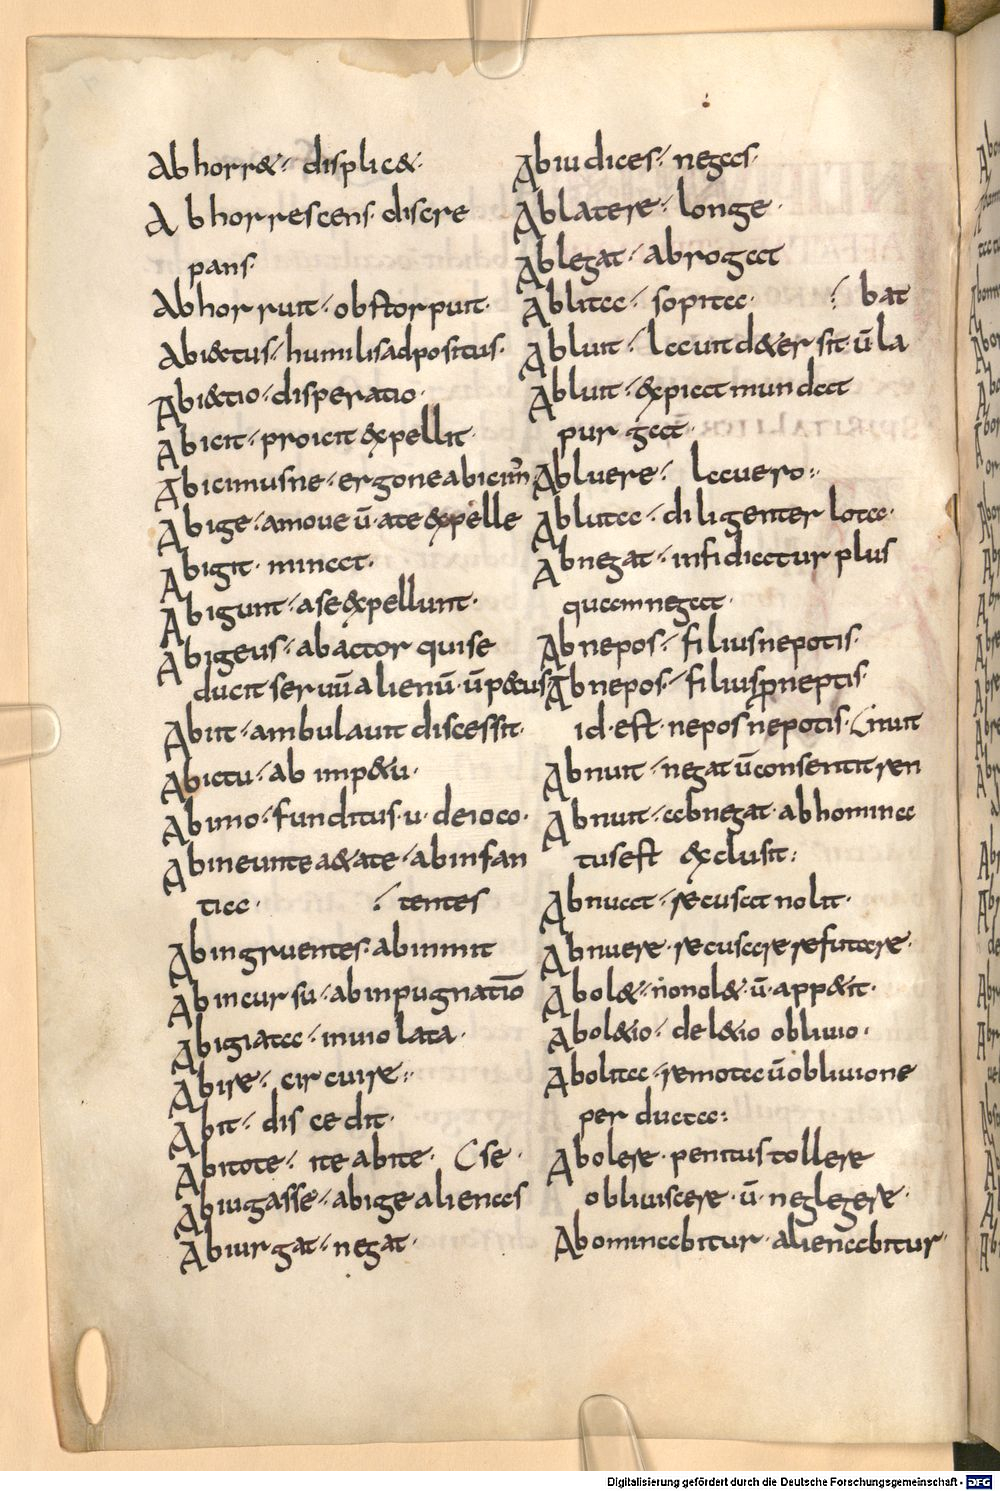 Abhorr&· displic&·
Abhorrescens· discre
pans·
Abhorruit· obstorpuit·
Abi&ctus· humilisadpositus·
Abi&tio· disperatio·
Abicit· proicit expellit·
Abicimusne· ergoneabicim
Abige· amoue ū· ate expelle
Abigit· minat·
Abigunt· ase expellunt·
Abigeus· abactor quise
ducit seruū alienū· ūp&cus
Abiit· ambulauit discessit·
Abictu· ab imp&u·
Abimo· funditus· u· deioco·
Abineunte a&ate· abinfan
tia· tentes
Abingruentes· abinmit
Abincursu· abinpugnatiō
Abigiata· inuiolata·
Abire· circuire·
Abit· discedit·
Abitote· ite abite· se·
Abiugasse· abigealienas
Abiurgat· negat·
Abiudices· negas·
Ablatere· longe·
Ablegat· abrogat
Ablita· sopita· bat
Abluit· lauit d&ersit ū la
Abluit· expiat mundat
purgat·
Abluere· lauero·
Abluta· diligenter lota·
Abnegat· infidiatur plus
quamnegat·
Abnepos· filiusnepotis·
Abnepos· filiusp̄neptis·
id·est· nepos nepotis· nuit
Abnuit· negat ūconsentit ren
Abnuit· abnegat· abhomina
tusest exclusit·
Abnuat· recusat nolit·
Abnuere· recusare refutare·
Abol&· nonol&· ū· app&it·
Abol&io· del&io obliuio·
Abolita· remota ūobliuione
per ducta·
Abolere· penitus tollere
obliuiscere· ū· neglegere·
Abominabitur· alienabitur·
Digitalisierung gefördert durch die Deutsche Forschungsgemeinschaft - DFG